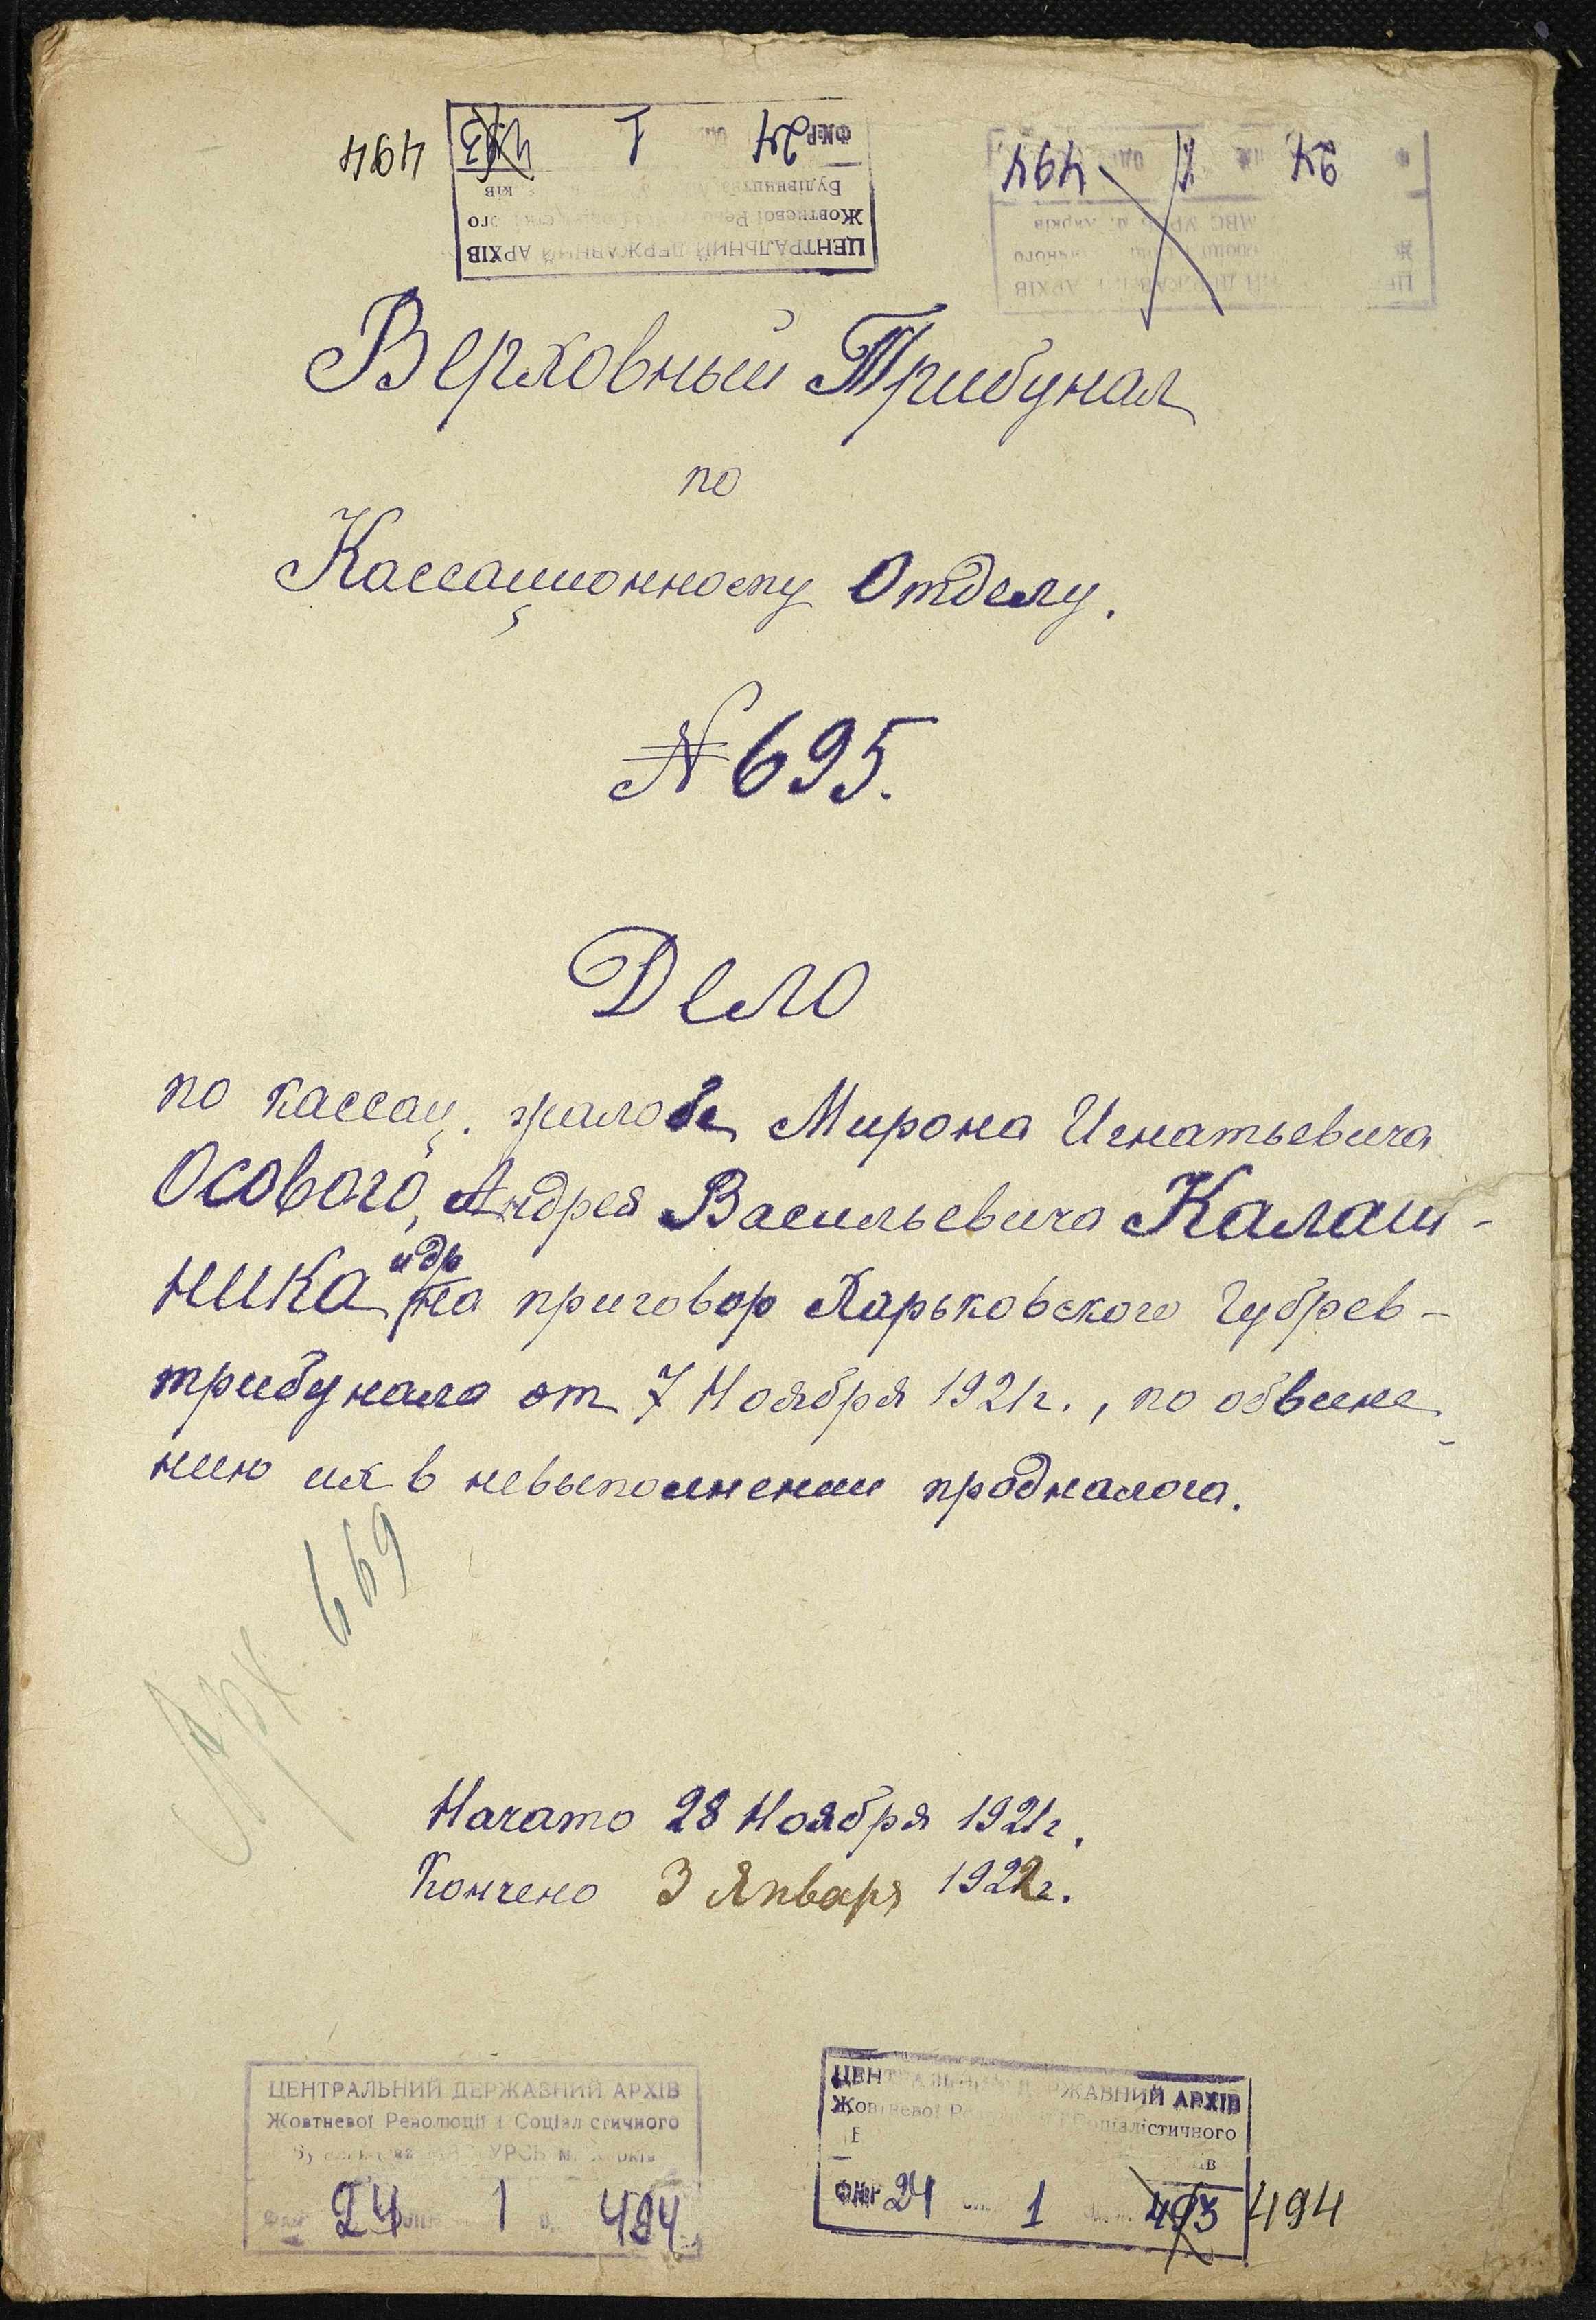 494
ЦЕНТРАЛЬНИЙ ДЕРЖАВНИЙ АРХІВ
Жовтневої
Будівництва
Ф№Р 24 1 493
АРХІВ
24 1 494
Верховный Трибунал
по
Кассационному Отделу.
№ 695.
Дело
по кассац. жалобе Мирона Игнатьевича
Осового, Андрея Васильевича Калаш-
ника и др на приговор Харьковского Губрев-
трибунала от 7 Ноября 1921 г., по обвине-
нию их в невыполнении продналога.
Арх 669
Начато 28 Ноября 1921 г.
Кончено 3 Января 1922 г.
ЦЕНТРАЛЬНИЙ ДЕРЖАВНИЙ АРХІВ
Жовтневої Революції і Соціалістичного
УРСР м. Харків
24 1 494
ЦЕНТРАЛЬНИЙ ДЕРЖАВНИЙ АРХІВ
Жовтневої Соціалістичного
Ф№Р 24 1 493 494